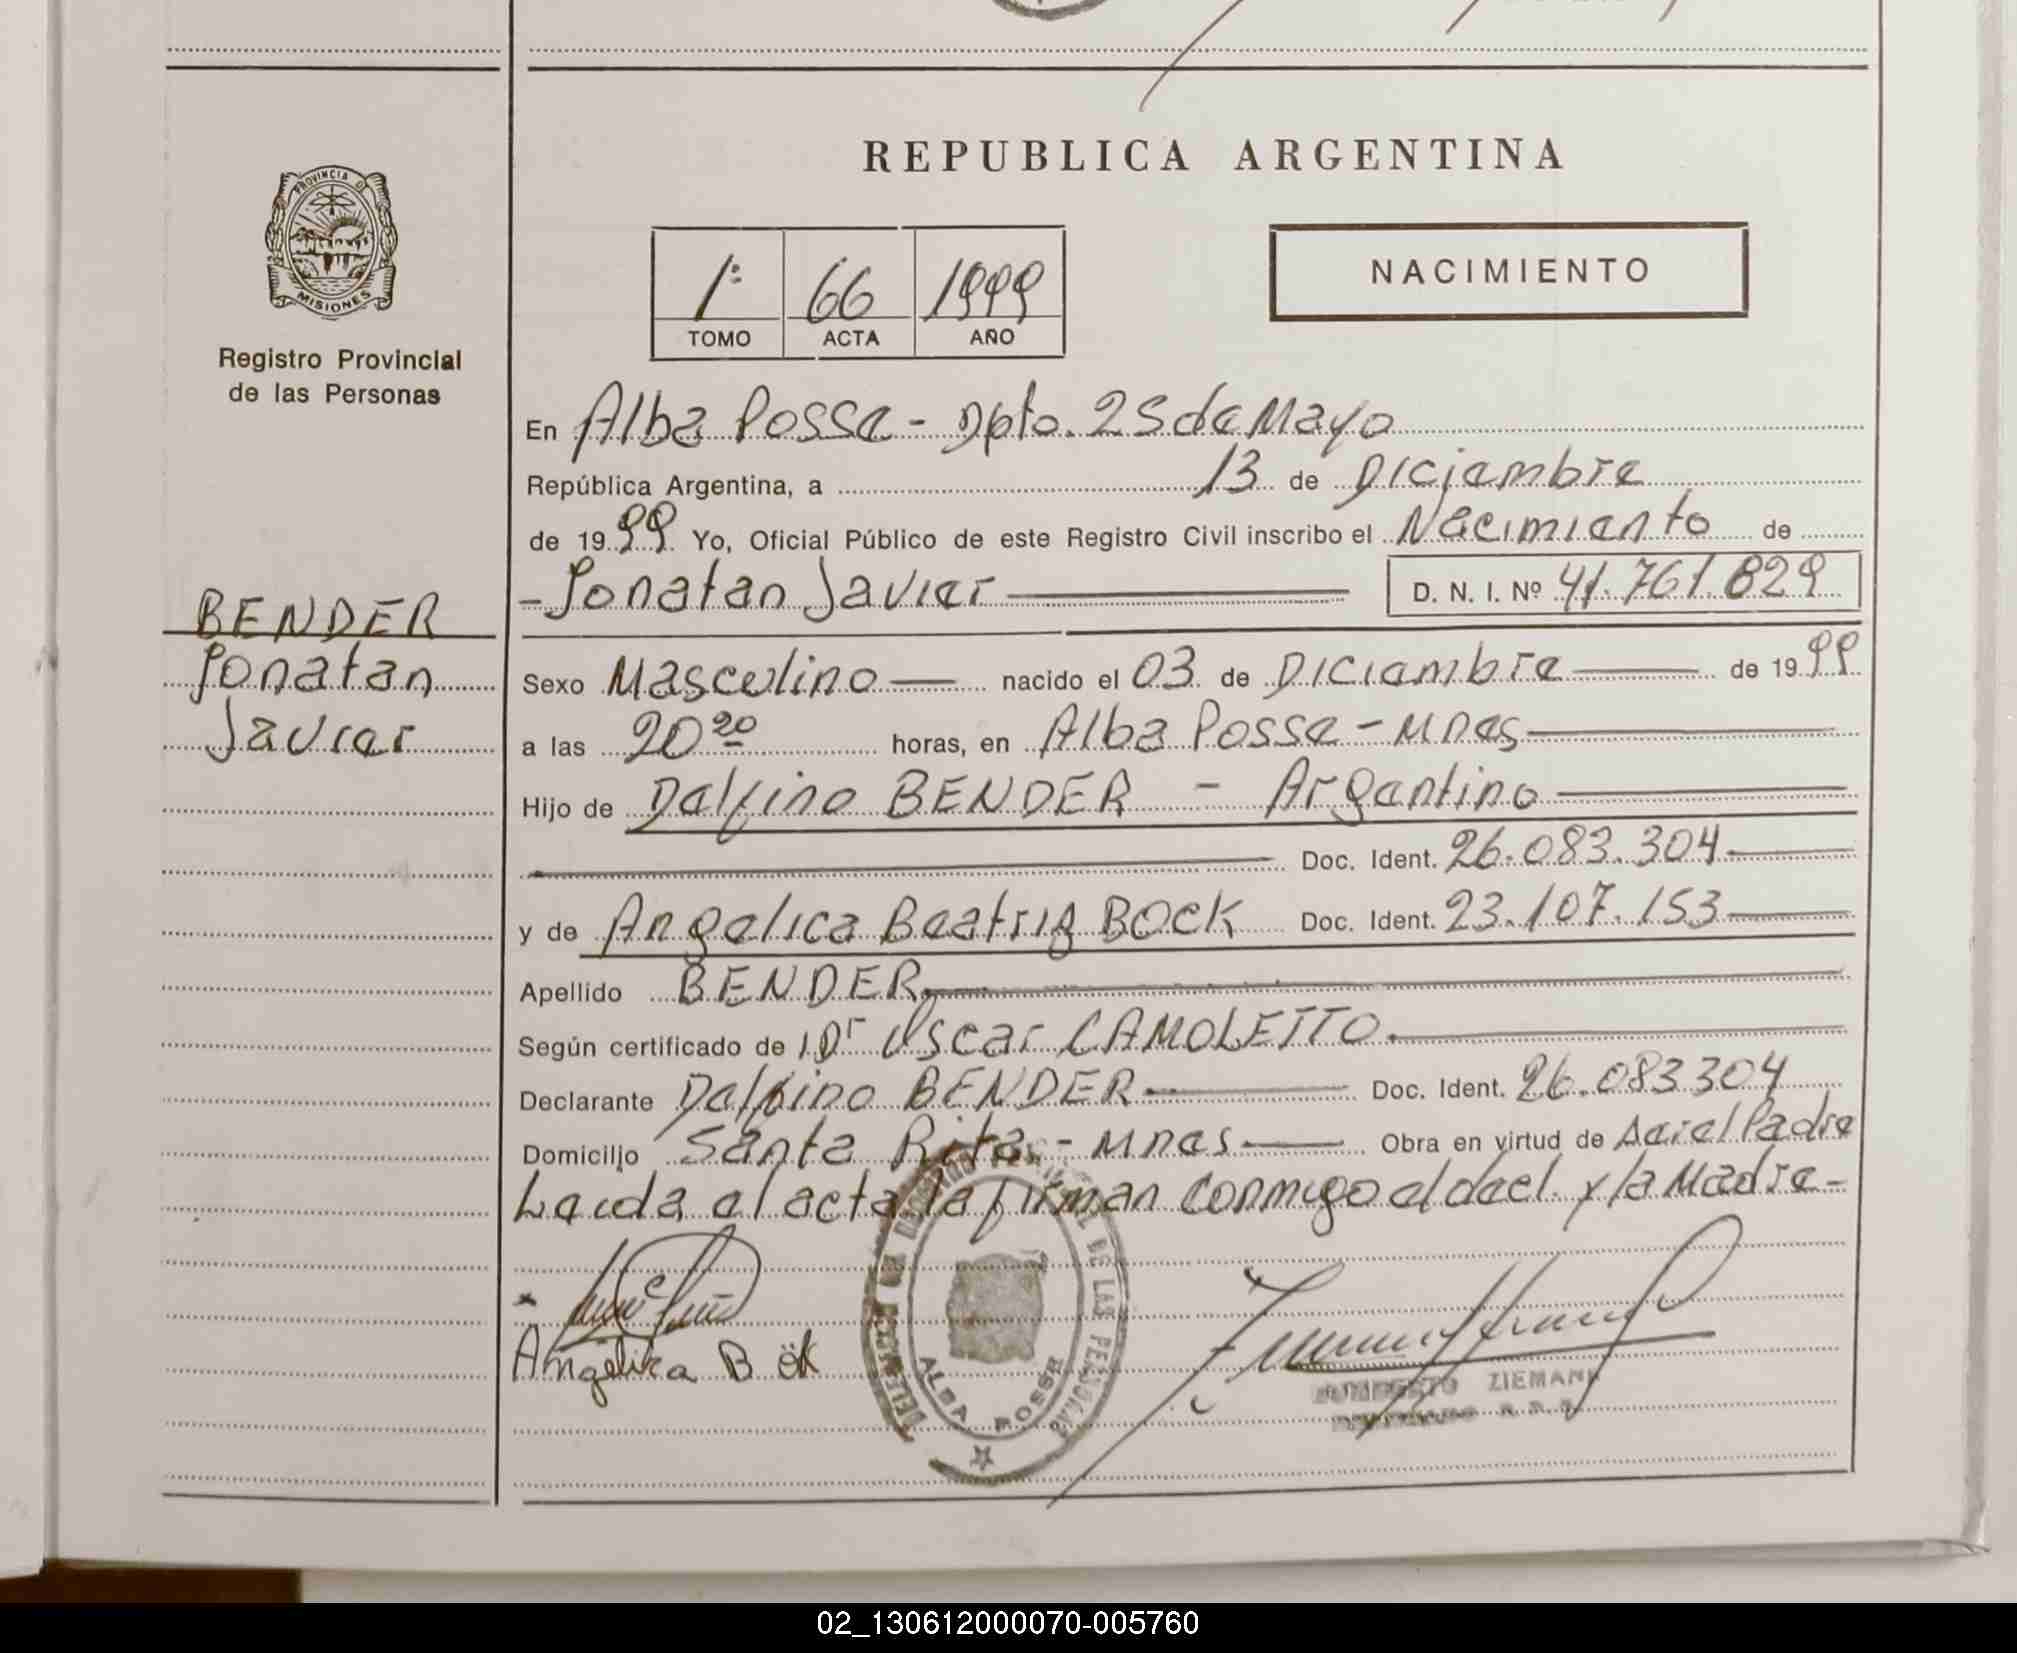 REPUBLICA ARGENTINA
PROVINCIA D
MISIONES
Registro Provincial
de las Personas
1º 66 1999
TOMO ACTA AÑO
NACIMIENTO
En Alba Posse - Dpto. 25 de Mayo
República Argentina, a 13 de Diciembre
de 1999 Yo, Oficial Público de este Registro Civil inscribo el Nacimiento de
- Jonatan Javier D. N. I. Nº 41.761.829
BENDER
Jonatan
Javier
Sexo Masculino nacido el 03 de Diciembre de 1999
a las 20 20 horas, en Alba Posse - Mnes
Hijo de Delfino BENDER - Argentino
Doc. Ident. 26.083.304
y de Angelica Beatriz BOCK Doc. Ident. 23.107.153
Apellido BENDER
Según certificado de Dr Oscar CAMOLETTO
Declarante Delfino BENDER Doc. Ident. 26.083304
Domicilio Santa Rita - Mnes Obra en virtud de del Padre
Leida el acta la firman conmigo el decl. y la Madre -
Angelika B ök
DE LAS PERSONAS
ALBA POSSE
ZIEMANN
02_130612000070-005760